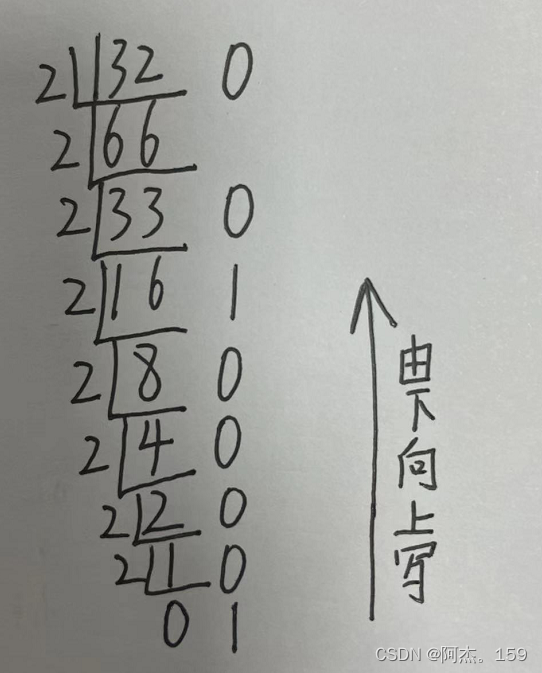 2 132 0
2 66
2 33 0
2 16 1
2 8 0
2 4 0
2 2 0
2 1 0
0 1
由下向上写
CSDN @阿杰。159